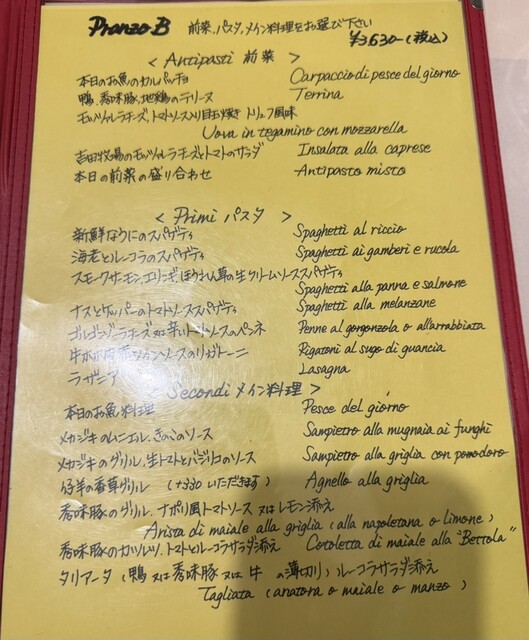 Pranzo B 前菜、パスタ、メイン料理をお選び下さい
¥3,630-(税込)
< Antipasti 前菜 >
本日のお魚のカルパッチョ Carpaccio di pesce del giorno
鴨、香味豚、地鶏のテリーヌ Terrina
モッツァレラチーズ、トマトソース入り目玉焼き トリュフ風味
Uova in tegamino con mozzarella
吉田牧場のモッツァレラチーズとトマトのサラダ Insalata alla caprese
本日の前菜の盛り合わせ Antipasto misto
< Primi パスタ >
新鮮なうにのスパゲティ Spaghetti al riccio
海老とルーコラのスパゲティ Spaghetti ai gamberi e rucola
スモークサーモン、エリンギ、ほうれん草の生クリームソーススパゲティ
Spaghetti alla panna e salmone
ナスとケッパーのトマトソーススパゲティ Spaghetti alla melanzane
ゴルゴンゾーラチーズ又は辛いトマトソースのペンネ Penne al gorgonzola o all'arrabbiata
牛ホホ肉赤ワインソースのリガトーニ Rigatoni al sugo di guancia
ラザニア Lasagna
Secondi メイン料理 >
本日のお魚料理 Pesce del giorno
メカジキのムニエル、きのこのソース Sampietro alla mugnaia ai funghi
メカジキのグリル、生トマトとバジリコのソース Sampietro alla griglia con pomodoro
仔羊の香草グリル (+330 いただきます) Agnello alla griglia
香味豚のグリル、ナポリ風トマトソース 又は レモン添え
Arista di maiale alla griglia (alla napoletana o limone)
香味豚のカツレツ、トマトとルーコラサラダ添え Cotoletta di maiale alla "Bettola"
タリアータ (鴨 又は 香味豚 又は 牛 の薄切り) ルーコラサラダ添え
Tagliata (anatora o maiale o manzo)